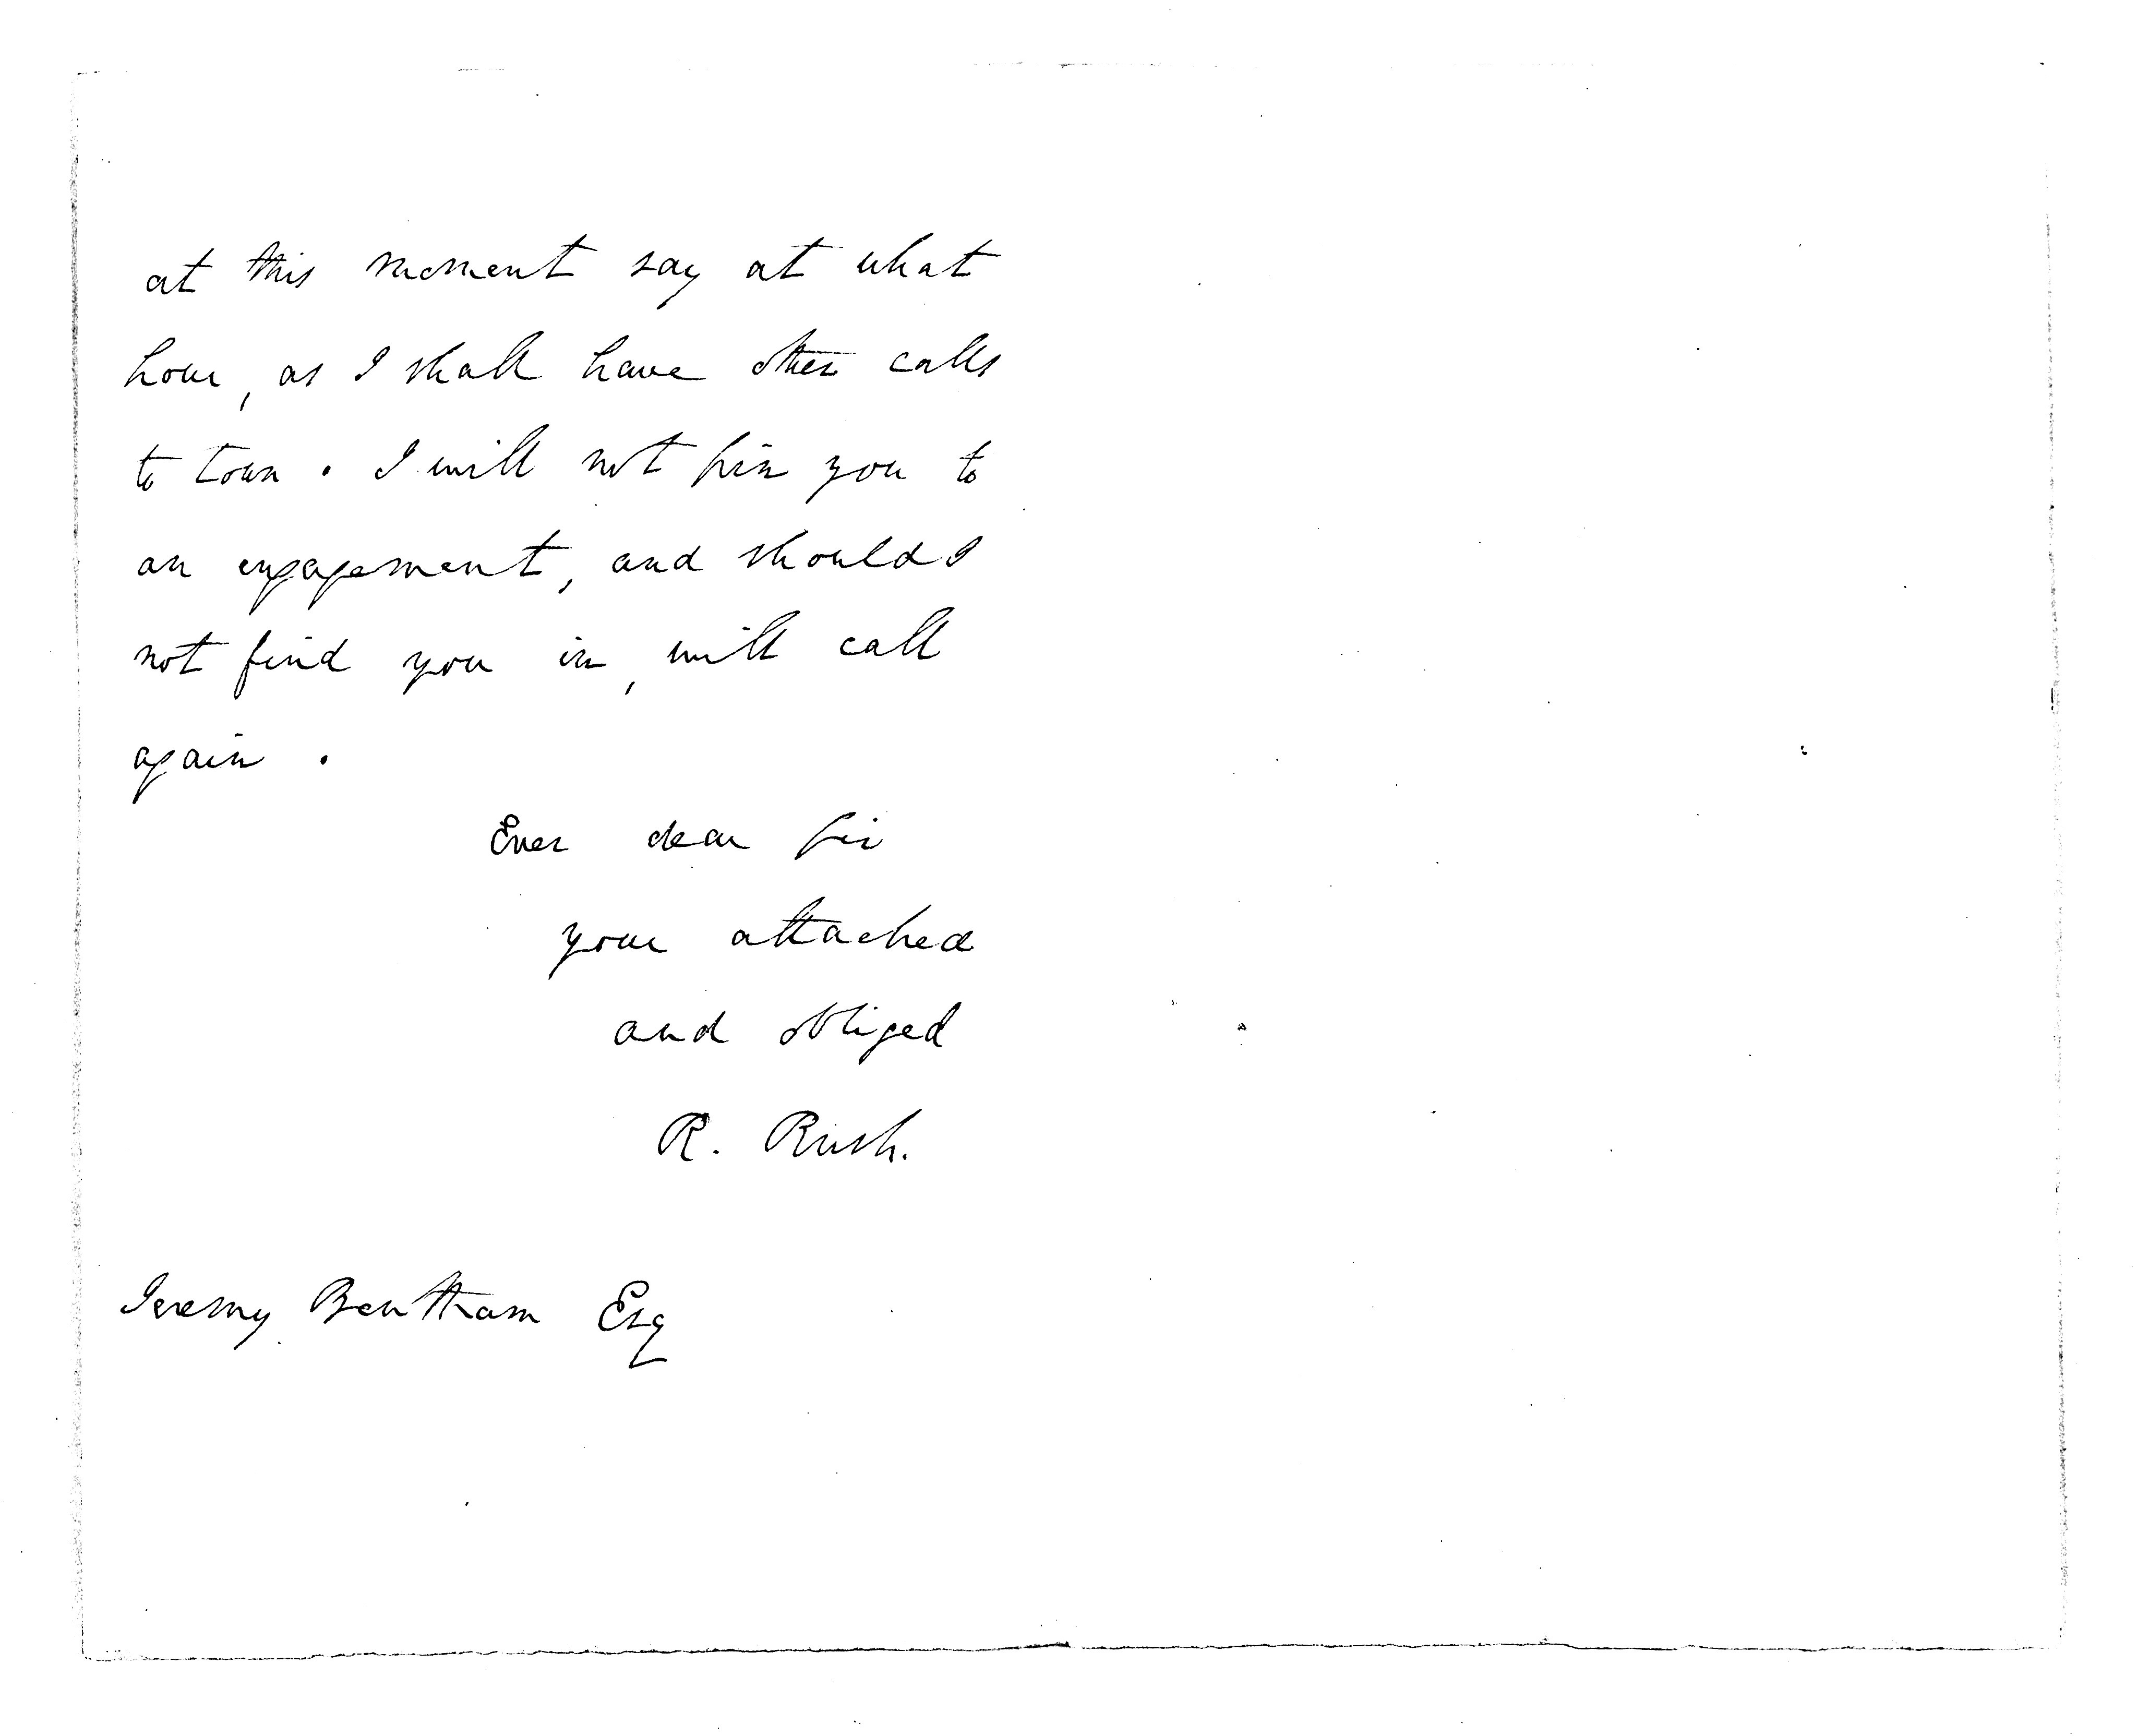 at this moment say at what
hour, as I shall have other calls
to town. I will not pin you to
an engagement, and should I
not find you in, will call
again.
Ever dear Sir
your attached
and obliged
R. Rush.
Jeremy Bentham Esq